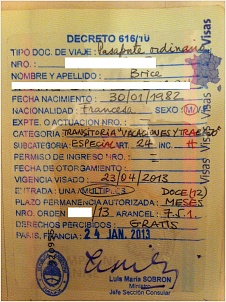 DECRETO 616/10
TIPO DOC. DE VIAJE: Pasaporte ordinario
NRO. :
NOMBRE Y APELLIDO : Brice
FECHA NACIMIENTO: 30/01/1982
NACIONALIDAD: Francesa SEXO: M
EXPTE. O ACTUACION NRO. : —
CATEGORIA: TRANSITORIA "VACACIONES Y TRABAJO"
SUBCATEGORIA: ESPECIAL ART. 24 INC. H
PERMISO DE INGRESO NRO. —
FECHA DE OTORGAMIENTO: —
VIGENCIA VISADO: 23/04/2013
ENTRADA: UNA/MULTIPLES DOCE (12)
PLAZO PERMANENCIA AUTORIZADA: MESES
NRO. ORDEN /13 ARANCEL: 7.S.1.
DERECHOS PERCIBIDOS: GRATIS
PARIS, FRANCIA: 24 JAN. 2013
Luis María SOBRON
Ministro
Jefe Sección Consular
Visas
Visas